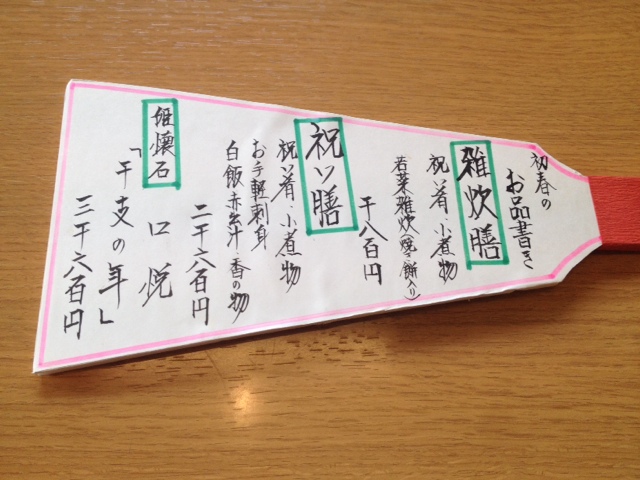 初春の
お品書き
雑炊膳
祝い肴、小煮物
若菜雑炊(焼き餅入り)
千八百円
祝い膳
祝い肴、小煮物
お手軽刺身
白飯 赤だし汁 香の物
二千六百円
姫懐石
口悦
「干支の年」
三千六百円